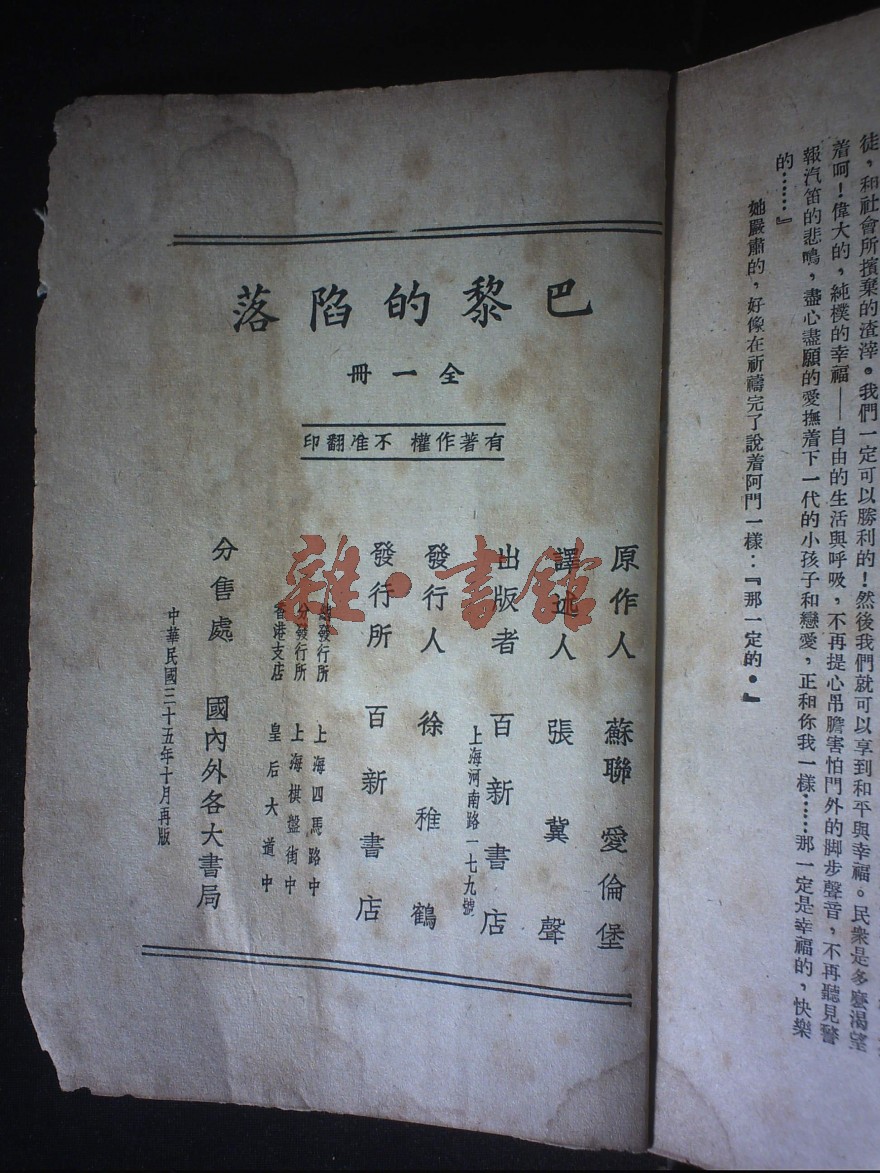 徒，和社會所擯棄的渣滓。我們一定可以勝利的！然後我們就可以享到和平與幸福。民衆是多麽渴望
着呵！偉大的，純樸的幸福——自由的生活與呼吸，不再提心吊膽害怕門外的脚步聲音，不再聽見警
報汽笛的悲鳴，盡心盡願的愛撫着下一代的小孩子和戀愛，正和你我一樣……那一定是幸福的，快樂
的……』
她嚴肅的，好像在祈禱完了說着阿門一樣：『那一定的。』
巴黎的陷落
全一冊
有著作權 不准翻印
原作人 蘇聯 愛倫堡
譯述人 張冀聲
出版者 百新書店
上海河南路一七九號
發行人 徐稚鶴
發行所 百新書店
總發行所 上海四馬路中
分發行所 上海棋盤街中
香港支店 皇后大道中
分售處 國內外各大書局
中華民國三十五年十月再版
雜·書館